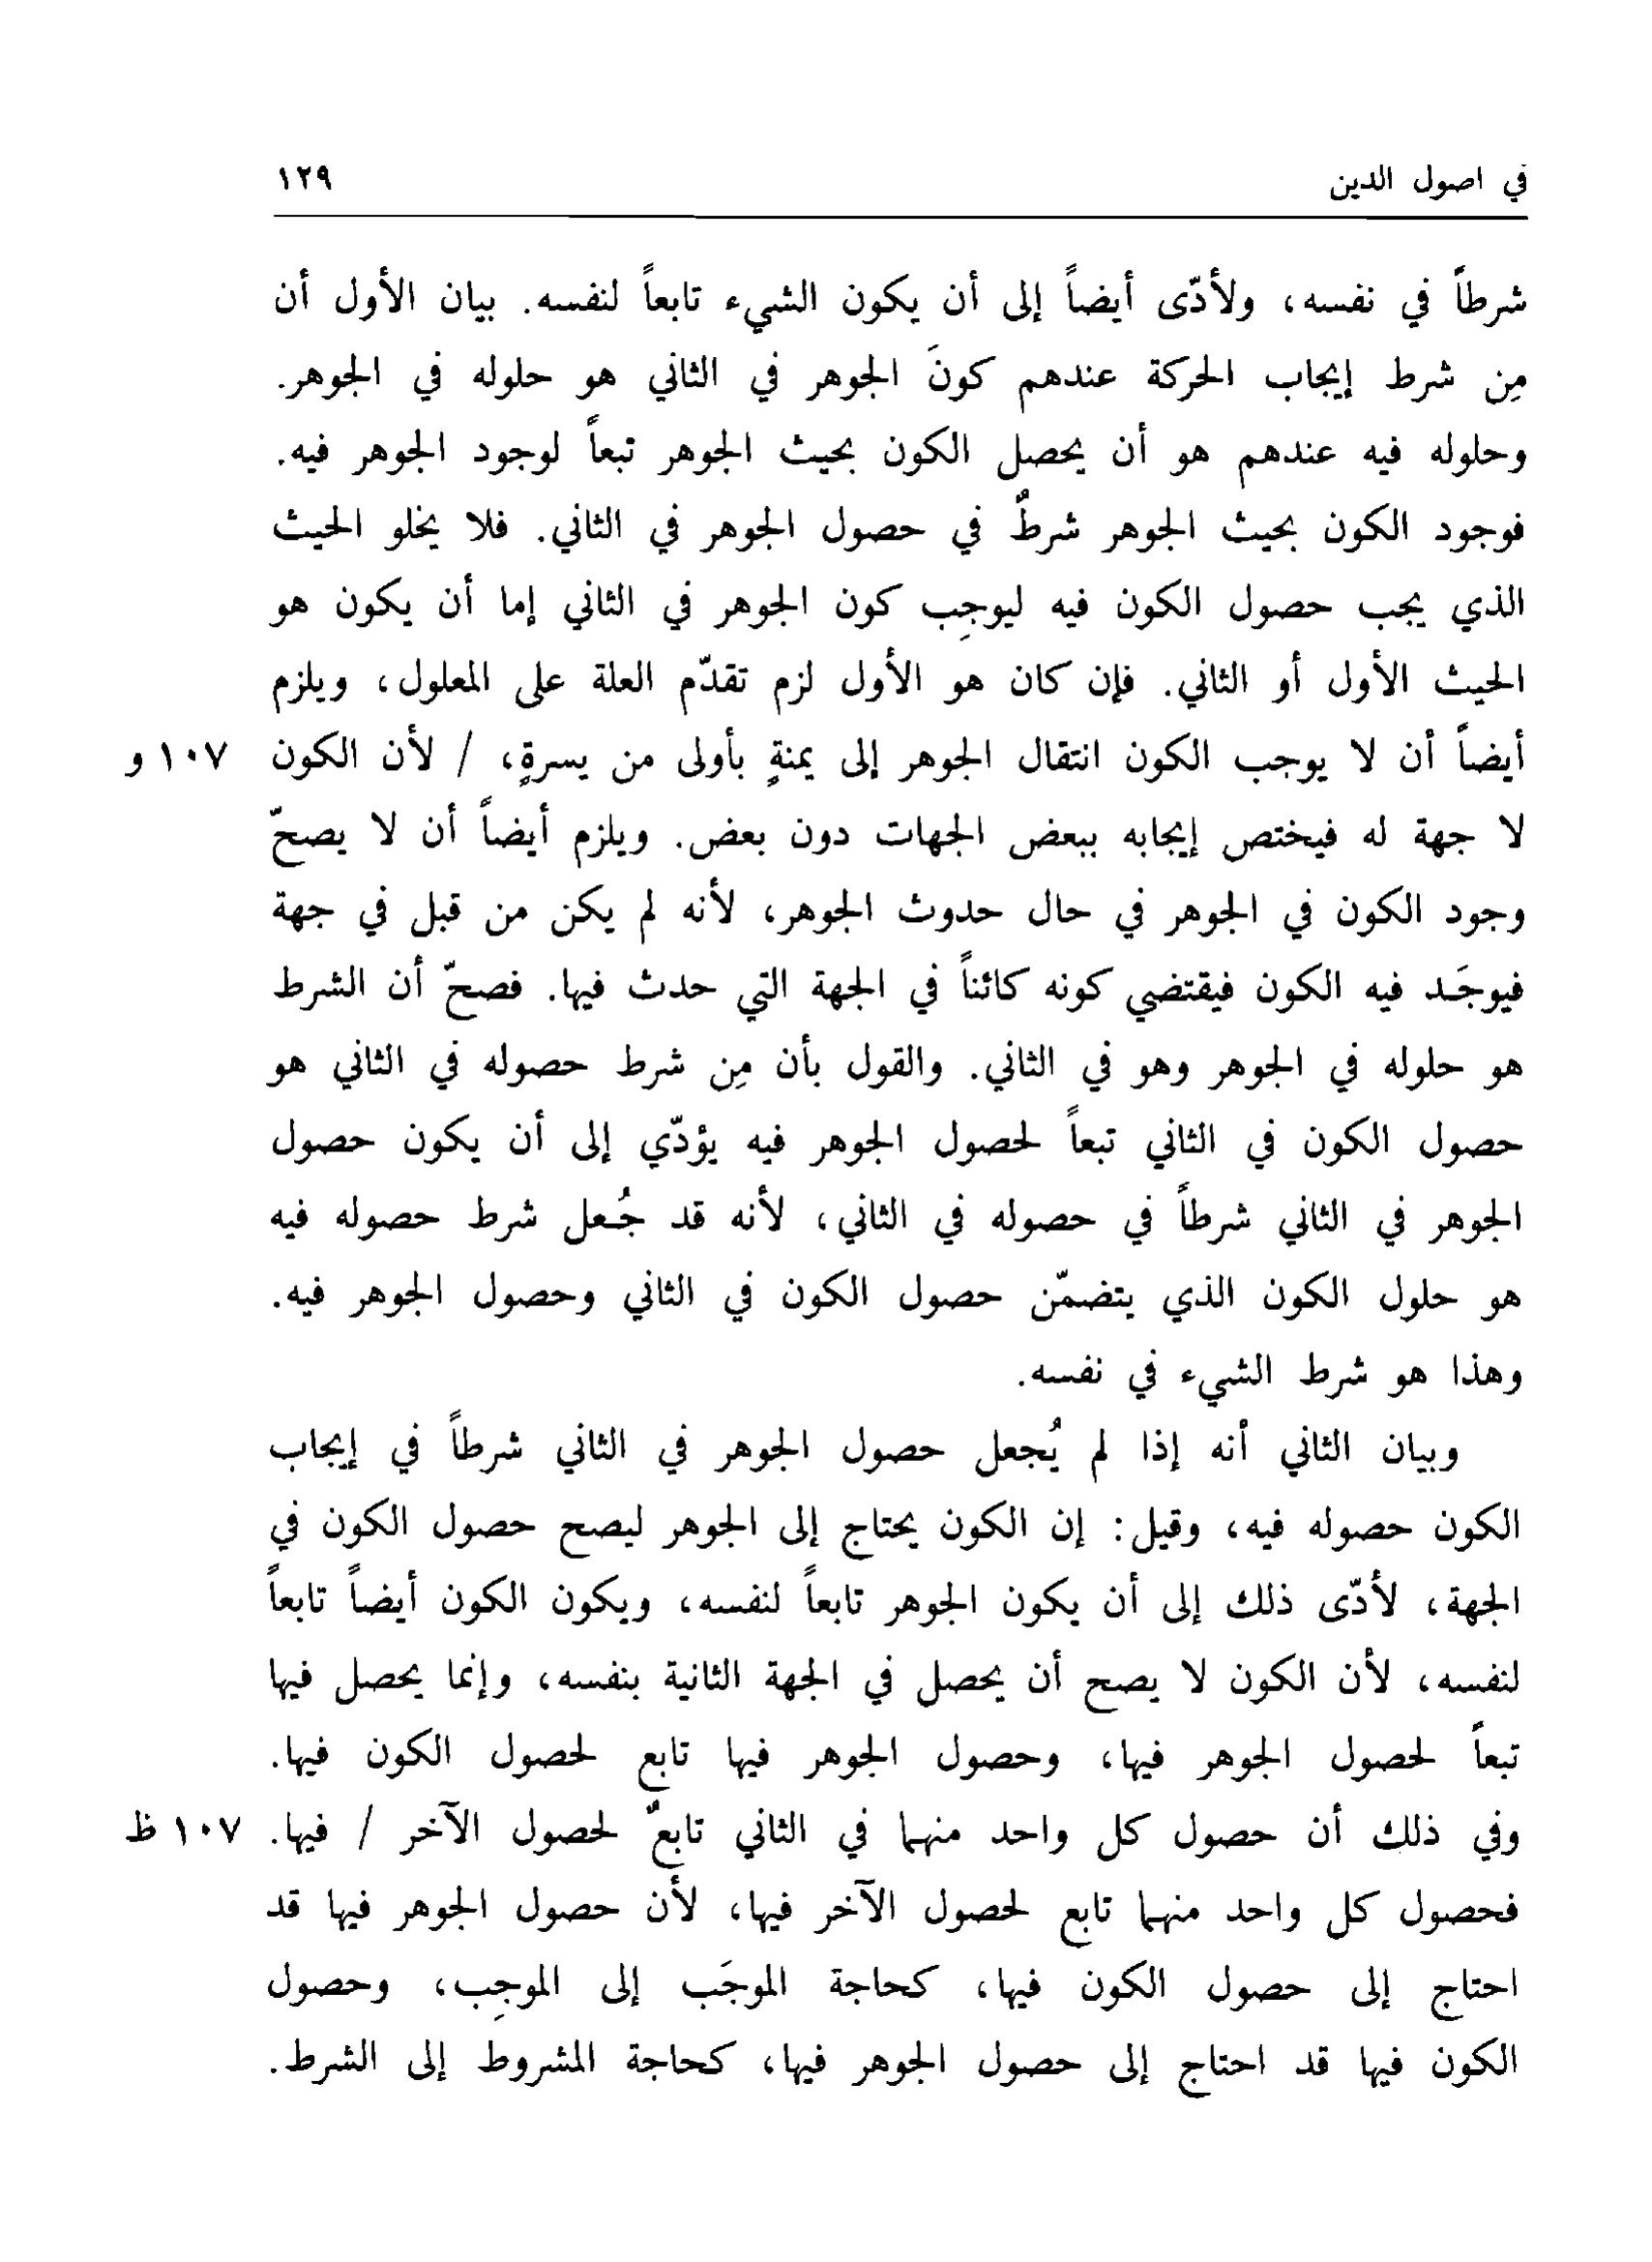 في اصول الدين ١٢٩
شرطاً في نفسه، ولأدّى أيضاً إلى أن يكون الشيء تابعاً لنفسه. بيان الأول أن
مِن شرط إيجاب الحركة عندهم كونَ الجوهر في الثاني هو حلوله في الجوهر.
وحلوله فيه عندهم هو أن يحصل الكون بحيث الجوهر تبعاً لوجود الجوهر فيه.
فوجود الكون بحيث الجوهر شرطٌ في حصول الجوهر في الثاني. فلا يخلو الحيث
الذي يجب حصول الكون فيه ليوجِب كون الجوهر في الثاني إما أن يكون هو
الحيث الأول أو الثاني. فإن كان هو الأول لزم تقدّم العلة على المعلول، ويلزم
أيضاً أن لا يوجب الكون انتقال الجوهر إلى يمنةٍ بأولى من يسرةٍ، / لأن الكون ١٠٧ و
لا جهة له فيختص إيجابه ببعض الجهات دون بعض. ويلزم أيضاً أن لا يصحّ
وجود الكون في الجوهر في حال حدوث الجوهر، لأنه لم يكن من قبل في جهة
فيوجَد فيه الكون فيقتضي كونه كائناً في الجهة التي حدث فيها. فصحّ أن الشرط
هو حلوله في الجوهر وهو في الثاني. والقول بأن مِن شرط حصوله في الثاني هو
حصول الكون في الثاني تبعاً لحصول الجوهر فيه يؤدّي إلى أن يكون حصول
الجوهر في الثاني شرطاً في حصوله في الثاني، لأنه قد جُعل شرط حصوله فيه
هو حلول الكون الذي يتضمّن حصول الكون في الثاني وحصول الجوهر فيه.
وهذا هو شرط الشيء في نفسه.
وبيان الثاني أنه إذا لم يُجعل حصول الجوهر في الثاني شرطاً في إيجاب
الكون حصوله فيه، وقيل: إن الكون يحتاج إلى الجوهر ليصح حصول الكون في
الجهة، لأدّى ذلك إلى أن يكون الجوهر تابعاً لنفسه، ويكون الكون أيضاً تابعاً
لنفسه، لأن الكون لا يصح أن يحصل في الجهة الثانية بنفسه، وإنما يحصل فيها
تبعاً لحصول الجوهر فيها، وحصول الجوهر فيها تابع لحصول الكون فيها.
وفي ذلك أن حصول كل واحد منهما في الثاني تابعٌ لحصول الآخر / فيها. ١٠٧ ظ
فحصول كل واحد منهما تابع لحصول الآخر فيها، لأن حصول الجوهر فيها قد
احتاج إلى حصول الكون فيها، كحاجة الموجَب إلى الموجِب، وحصول
الكون فيها قد احتاج إلى حصول الجوهر فيها، كحاجة المشروط إلى الشرط.